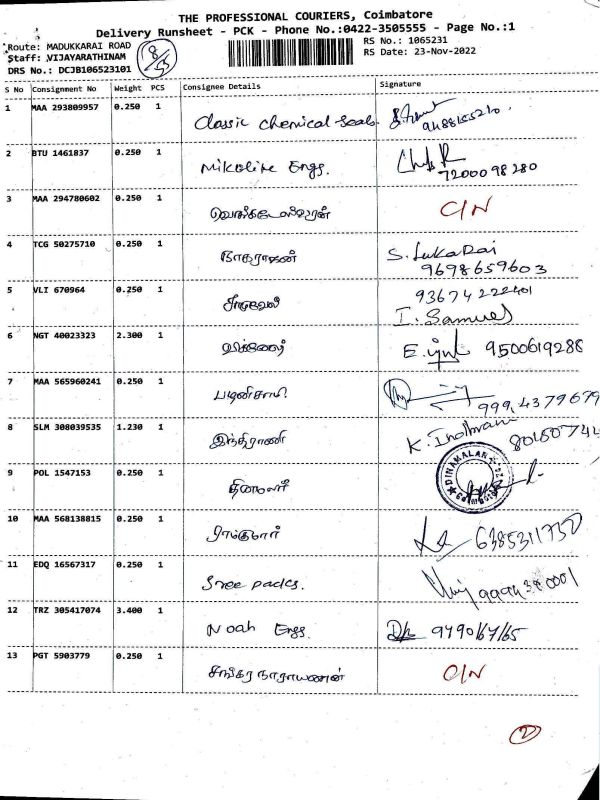 THE PROFESSIONAL COURIERS, Coimbatore
Delivery Runsheet - PCK - Phone No.:0422-3505555 - Page No.:1
Route: MADUKKARAI ROAD
RS No.: 1065231
Staff: VIJAYARATHINAM
RS Date: 23-Nov-2022
DRS No.: DCJB106523101
S No Consignment No Weight PCS Consignee Details Signature
1 MAA 293809957 0.250 1 Classic Chemical Seals
9488155210
2 BTU 1461837 0.250 1 Nikolite Engs.
7200098280
3 MAA 294780602 0.250 1 C/N
4 TCG 50275710 0.250 1 நாகராஜன்
9698659603
5 VLI 670964 0.250 1 93674222401
I. Samuel
6 NGT 40023323 2.300 1 E. 9500619288
7 MAA 565960241 0.250 1 பழனிசாமி 9994379679
8 SLM 308039535 1.230 1 இந்திராணி K. Indhrani
9 POL 1547153 0.250 1 தினமலர் DINAMALAR
10 MAA 568138815 0.250 1 ராம்குமார் 6385311730
11 EDQ 16567317 0.250 1 Sree packs. 9994380001
12 TRZ 305417074 3.400 1 Noah Engg. 9790167165
13 PGT 5903779 0.250 1 சங்கர நாராயணன் C/N
2